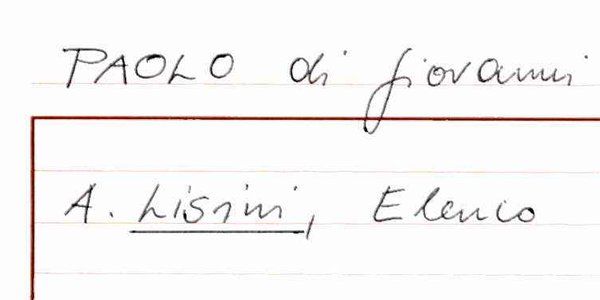 PAOLO di giovanni
A. Lisini, Elenco